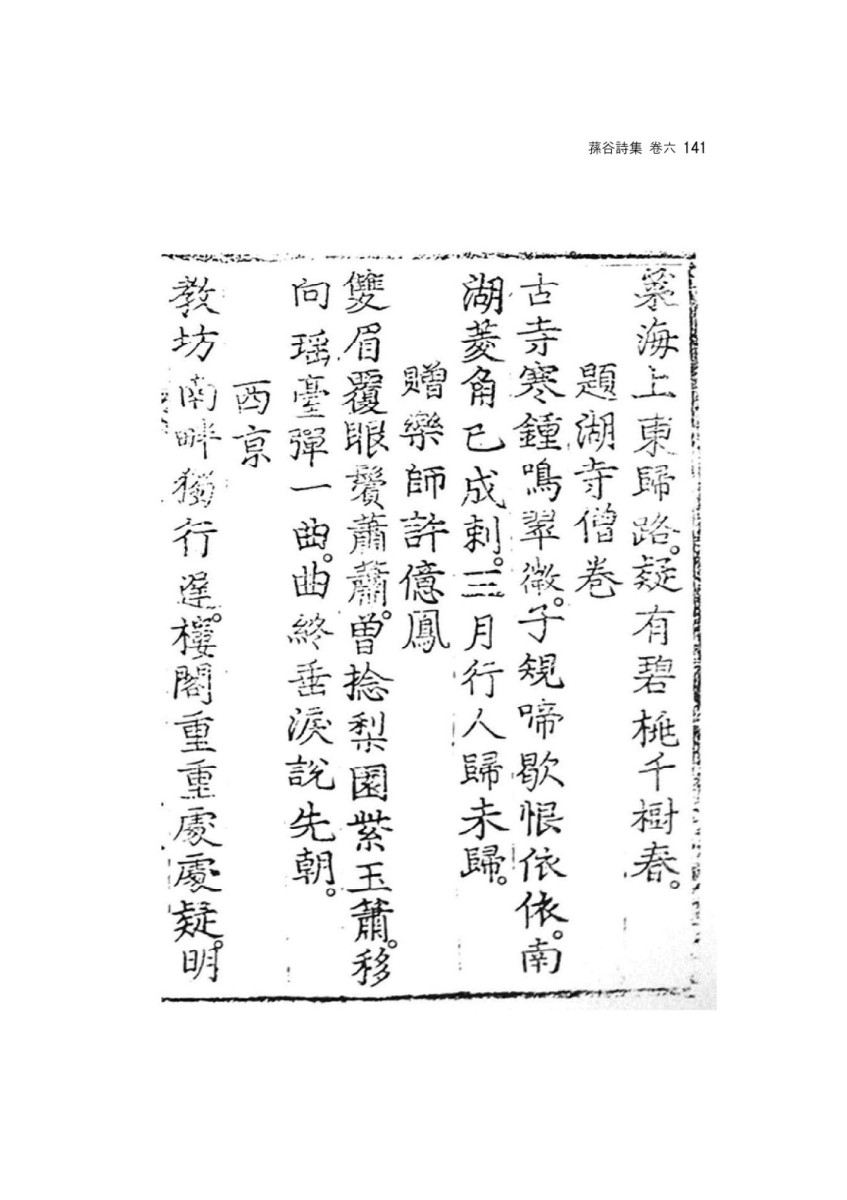 蓀谷詩集 卷六 141
海上東歸路。疑有碧桃千樹春。
題湖寺僧卷
古寺寒鍾鳴翠微。子規啼歇恨依依。南
湖菱角已成刺。三月行人歸未歸。
贈樂師許億鳳
雙眉覆眼鬢蕭蕭。曾捻梨園紫玉簫。移
向瑤臺彈一曲。曲終垂淚說先朝。
西京
敎坊南畔獨行遲。樓閣重重處處疑。明